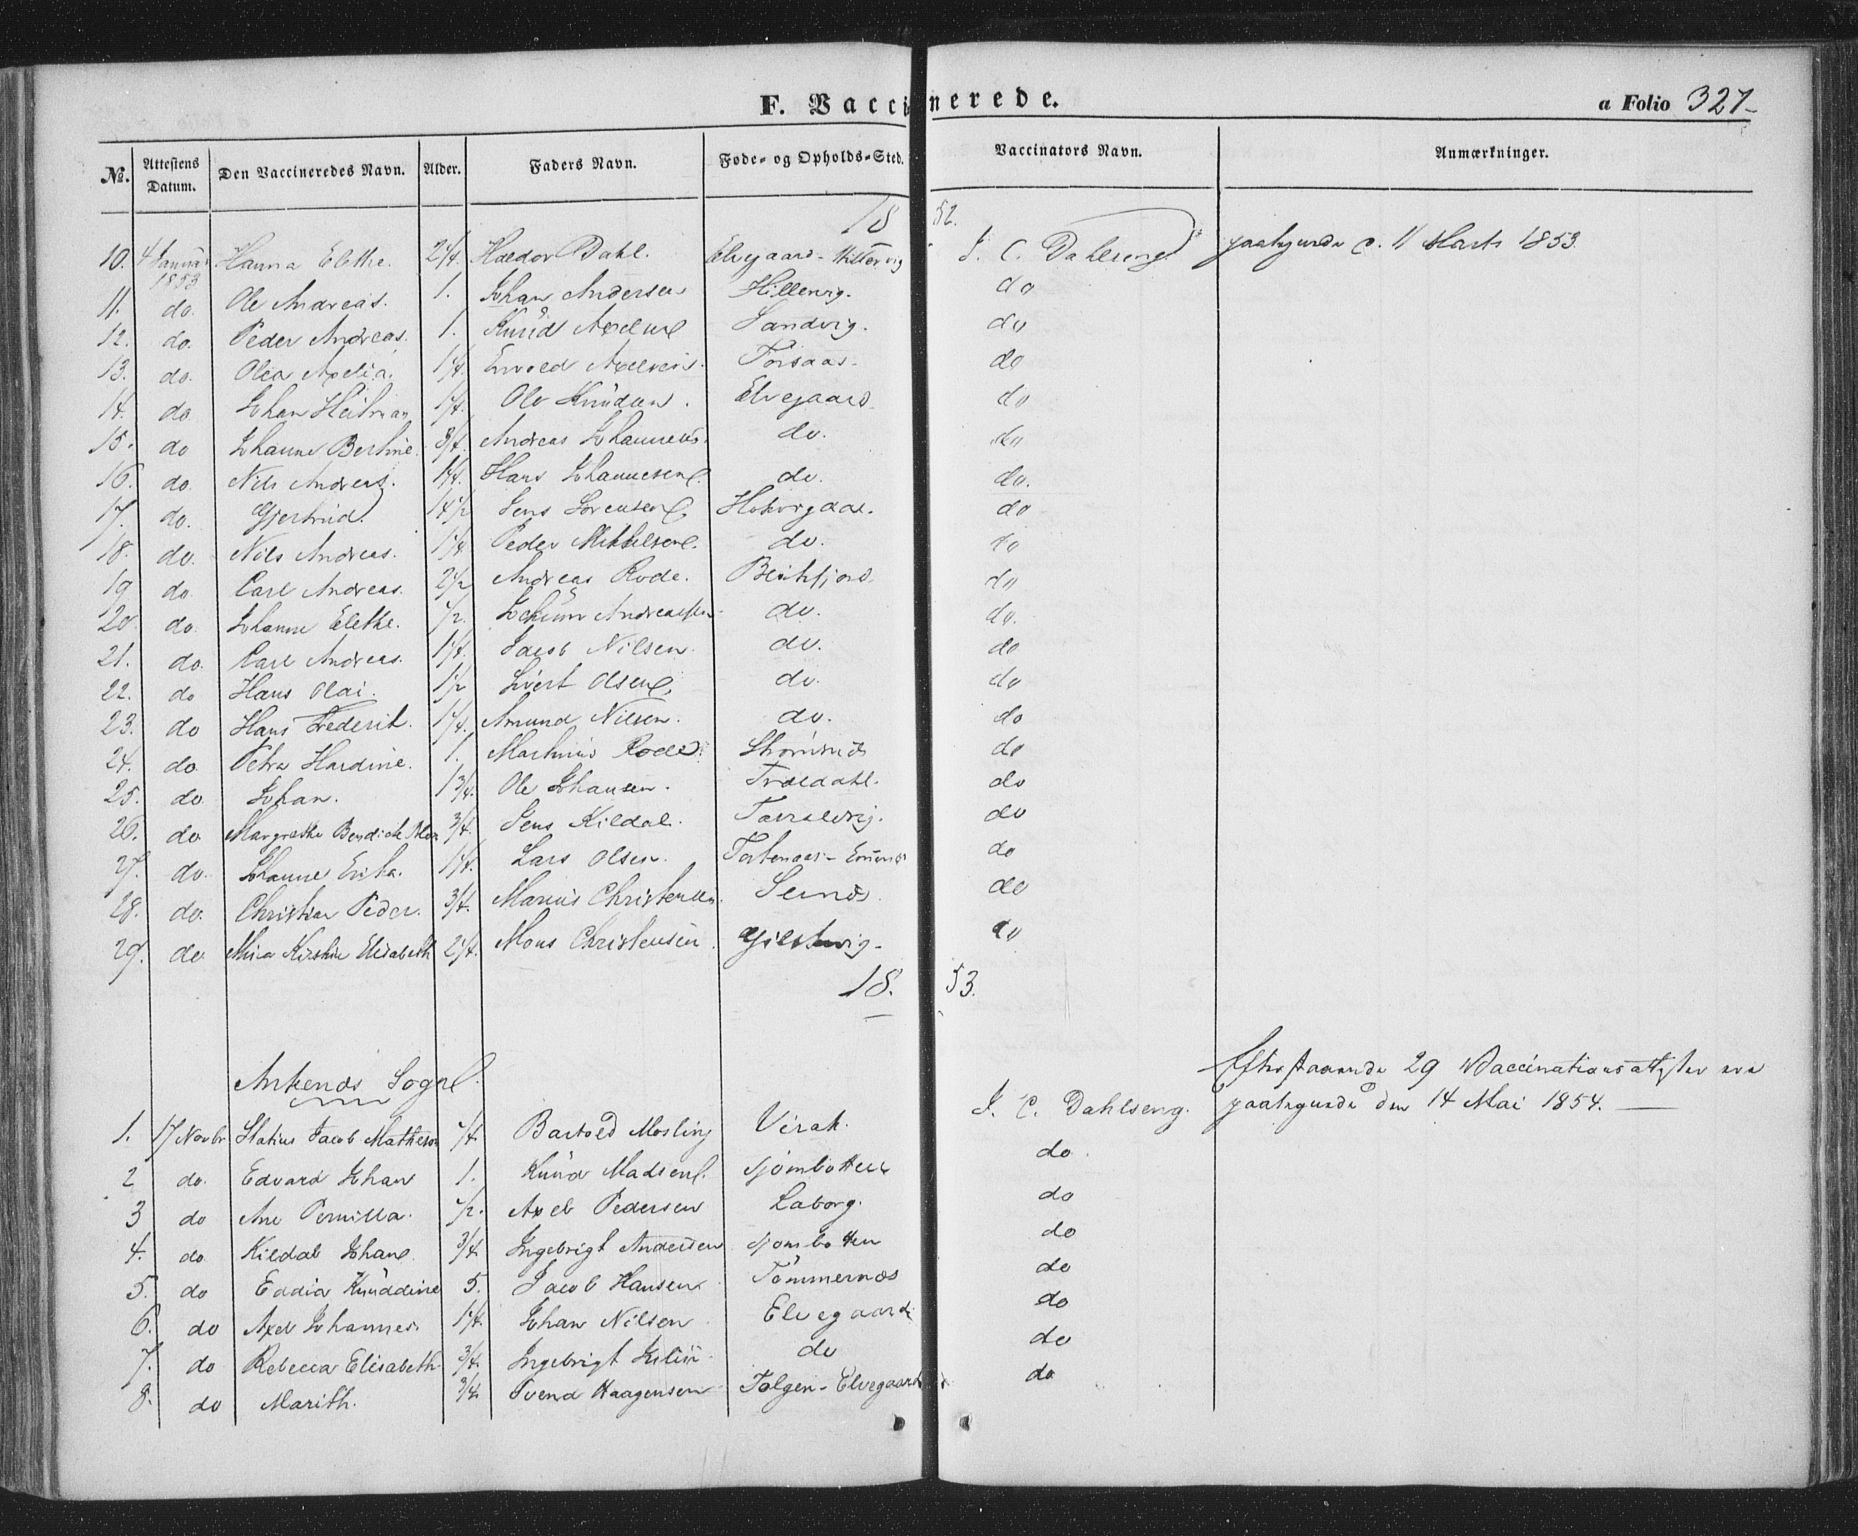 F. Vaccinerede.
a Folio 327
No. Attestens Datum. Den Vaccineredes Navn. Alder. Faders Navn. Føde- og Opholds-Sted. Vaccinators Navn. Anmærkninger.
18 52.
10. 4 Januar 1853 Hanna Elethe. 2 1/4. Haldor Dahl. Elvegaard J. C. Dahlseng. paategnede d. 11 Marts 1853.
11. do. Ole Andreas. 1. Johan Andersen Hillervig. do
12. do. Peder Andreas. 1. Knud Axelsen Sandvig. do
13. do. Olea Axelia. 1 1/4. Axelsen. Forsaas. do
14. do Johan 1 1/4. Ole Knudsen. Elvegaard. do
15. do Johanne Berthine. 3/4. Andreas Johannesen. do. do
16. do. Nils Andreas. 1 1/4. Hans Johannesen. do. do.
17. do. Gjertrud. 14 1/2 Jens Sørensen. do
18. do. Nils Andreas. 1 1/4 Peder Mikkelsen. do. do
19 do. Carl Andreas. 2 1/2 Andreas Rode. Beisfjord. do
20. do. Johanne Elethe. 1/2. Jochum Andreassen do. do.
21. do. Carl Andreas. 1 1/4. Jacob Nilsen. do. do
22. do Hans Olai. 1 1/2 Sivert Olsen. do. do
23. do Hans Frederik. 1 1/4. Amund Nilsen. do. do
24. do. Petra Hardine. 1. Martinus Rode. do
25. do. Johan. 1 3/4. Ole Johansen. Trældahl. do
26. do Margrethe Bendicte 3/4. Jens Kildal. Taraldvig. do
27. do. Johanne Erika. 1 1/4. Lars Olsen. do
28. do. Christian Peder. 3/4. Marius Christensen. Seines. do
29. do. Kirstine Elisabeth 2 1/4. Mons Christensen. do
18. 53.
Ankenæs Sogn.
Efterstaaende 29 Vaccinationsattester ere
1. 17 Novbr Statius Jacob Matheson 1/4. Bartold Mosling Virak. J. C. Dahlseng. paategnede den 14 Mai 1854.
2 do. Edvard Johan 1. Knud Madsen. Sjombotten do.
3 do Ane Pernilla. 1/2. Axel Pedersen Laborg. do
4. do. Kildal Johan. 3/4. Ingebrigt Andersen Sjombotten do
5. do Eddia Knuddine 5. Jacob Hansen. Tømmernæs do
6. do Axel Johannes. 1 1/4. Johan Nilsen Elvegaard do
7. do Rebecca Elisabeth. 3/4. Ingebrigt do do
8. do Marith. 3/4. Svend Haagensen Elvegaard do